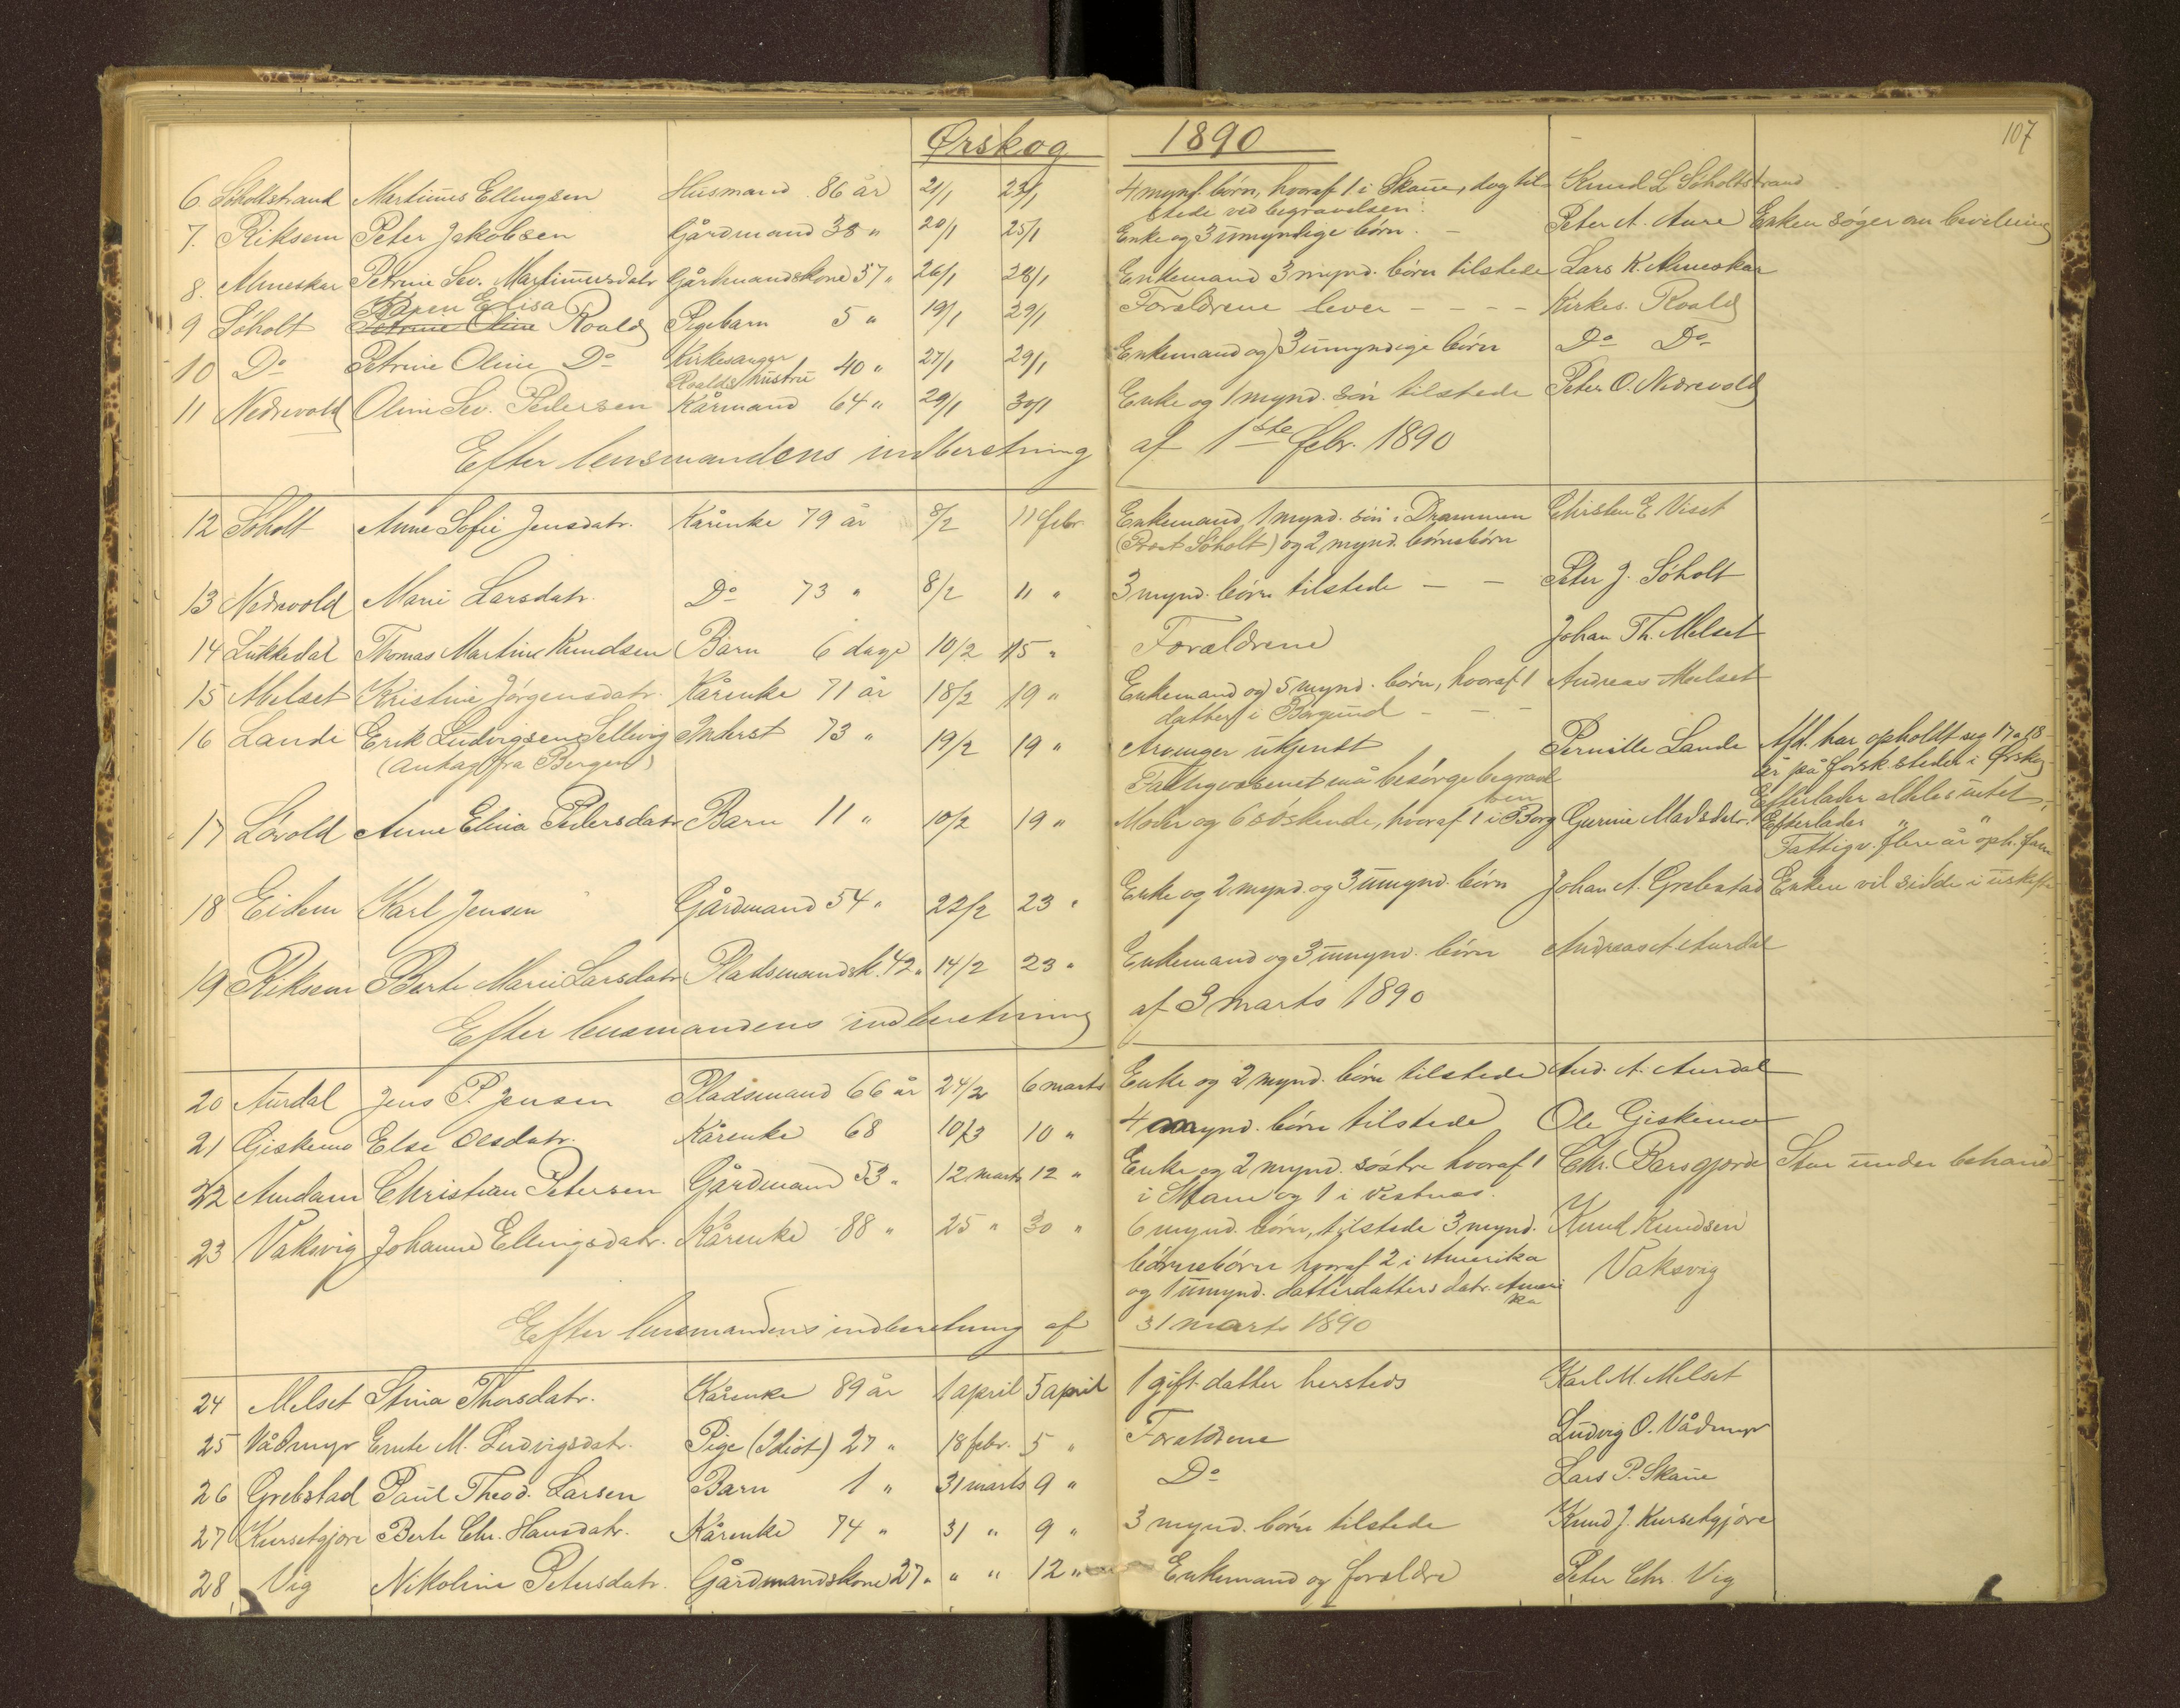 Ørskog 1890 107
6 Søholtstrand Martinus Ellingsen Husmand 86 år 21/1 23/1 4 mynd. børn, hvoraf 1 i Skaue, dog til- Knud L Søholtstrand
stede ved begravelsen.
7. Riksem Peter Jakobsen Gårdmand 38 " 20/1 25/1 Enke og 3 umyndige børn. - Peter A. Aure Enken søger om bevilning
8. Almeskar Petrine Sev. Martinusdatr Gårdmandskone 57 " 26/1 28/1 Enkemand 3 mynd. børn tilstede Lars K. Almeskar
Karen Elisa
9 Søholt Petrine Oline Roald Pigebarn 5 " 19/1 29/1 Forældrene lever - - - - Kirkes. Roald
10 Do Petrine Oline Do Kirkesanger 40 " 27/1 29/1 Enkemand og 3 umyndige børn Do Do
Roalds hustru
11 Nedrevold Olini Sev. Pedersen Kårmand 64 " 29/1 30/1 Enke og 1 mynd. søn tilstede Peter O. Nedrevold
Efter lensmandens indberetning af 1ste febr. 1890
12 Søholt Anne Sofie Jensdatr. Kårenke 79 år 8/2 11 febr Enkemand, 1 mynd. søn i Drammen Christen E Viset
(Prost Søholt) og 2 mynd. børnebørn
13 Nedrevold Marie Larsdatr. Do 73 " 8/2 11 " 3 mynd. børn tilstede - - Peter J. Søholt
14 Lukkedal Thomas Martin Knudsen Barn 6 dage 10/2 15 " Forældrene Johan Th. Melset
15 Melset Kristine Jørgensdatr. Kårenke 71 år 18/2 19 " Enkemand og 5 mynd. børn, hvoraf 1 Andreas Melset
datter i Borgund - - -
16 Lande Erik Ludvigsen Sellevig Inderst 73 " 19/2 19 " Arvinger ukjendt Pernille Lande Afd. har opholdt seg 17 a 18
(antag. fra Bergen) Fattigvæsenet må besørge begravel år på forsk. steder i Ørskog
sen Efterlader aldeles intet.
17 Løvold Anne Elina Pedersdatr Barn 11 " 10/2 19 " Moder og 6 søskende, hvoraf 1 i Borg Gurine Madsdatr. Efterlader " "
Fattigv. flere år oph. fam
18 Eidem Karl Jensen Gårdmand 54 " 22/2 23 " Enke og 2 mynd. og 3 umynd. børn Johan A. Grebstad Enken vil sidde i uskifte
19 Riksem Berte Marie Larsdatr Pladsmandsk. 42 " 14/2 23 " Enkemand og 3 umynd. børn Andreas A Aurdal
Efter lensmandens indberetning af 3 marts 1890
20 Aurdal Jens P. Jensen Pladsmand 66 år 24/2 6 marts Enke og 2 mynd. børn tilstede And. A. Aurdal
21 Giskemo Else Olsdatr. Kårenke 68 10/3 10 " 4 mynd. børn tilstede Ole Giskemo
22 Amdam Christian Petersen Gårdmand 53 " 12 marts 12 " Enke og 2 mynd. søstre hvoraf 1 Chr. Barsgjerde Star under behand
i Stam og 1 i Vestnæs.
23 Vaksvig Johanne Ellingsdatr. Kårenke 88 " 25 " 30 " 6 mynd. børn, tilstede 3 mynd. Knud Knudsen
børnebørn hvoraf 2 i Amerika Vaksvig
og 1 umynd. datterdatters datr. Ameri
ka
Efter lensmandens indberetning af 31 marts 1890
24 Melset Stina Thorsdatr. Kårenke 89 år 1 april 5 april 1 gift datter hersteds Karl M. Melset
25 Vådmyr Ernte M. Ludvigsdatr. Pige (Idiot) 27 " 18 febr. 5 " Forældrene Ludvig O. Vådmyr
26 Grebstad Paul Theod. Larsen Barn 1 " 31 marts 9 " Do Lars P. Skaue
27 Kursetgjøre Berte Chr. Hansdatr. Kårenke 74 " 31 " 9 " 3 mynd. børn tilstede Knud J. Kursetgjøre
28 Vig Nikoline Petersdatr. Gårdmandskone 27 " " " 12 " Enkemand og forældre Peter Chr. Vig